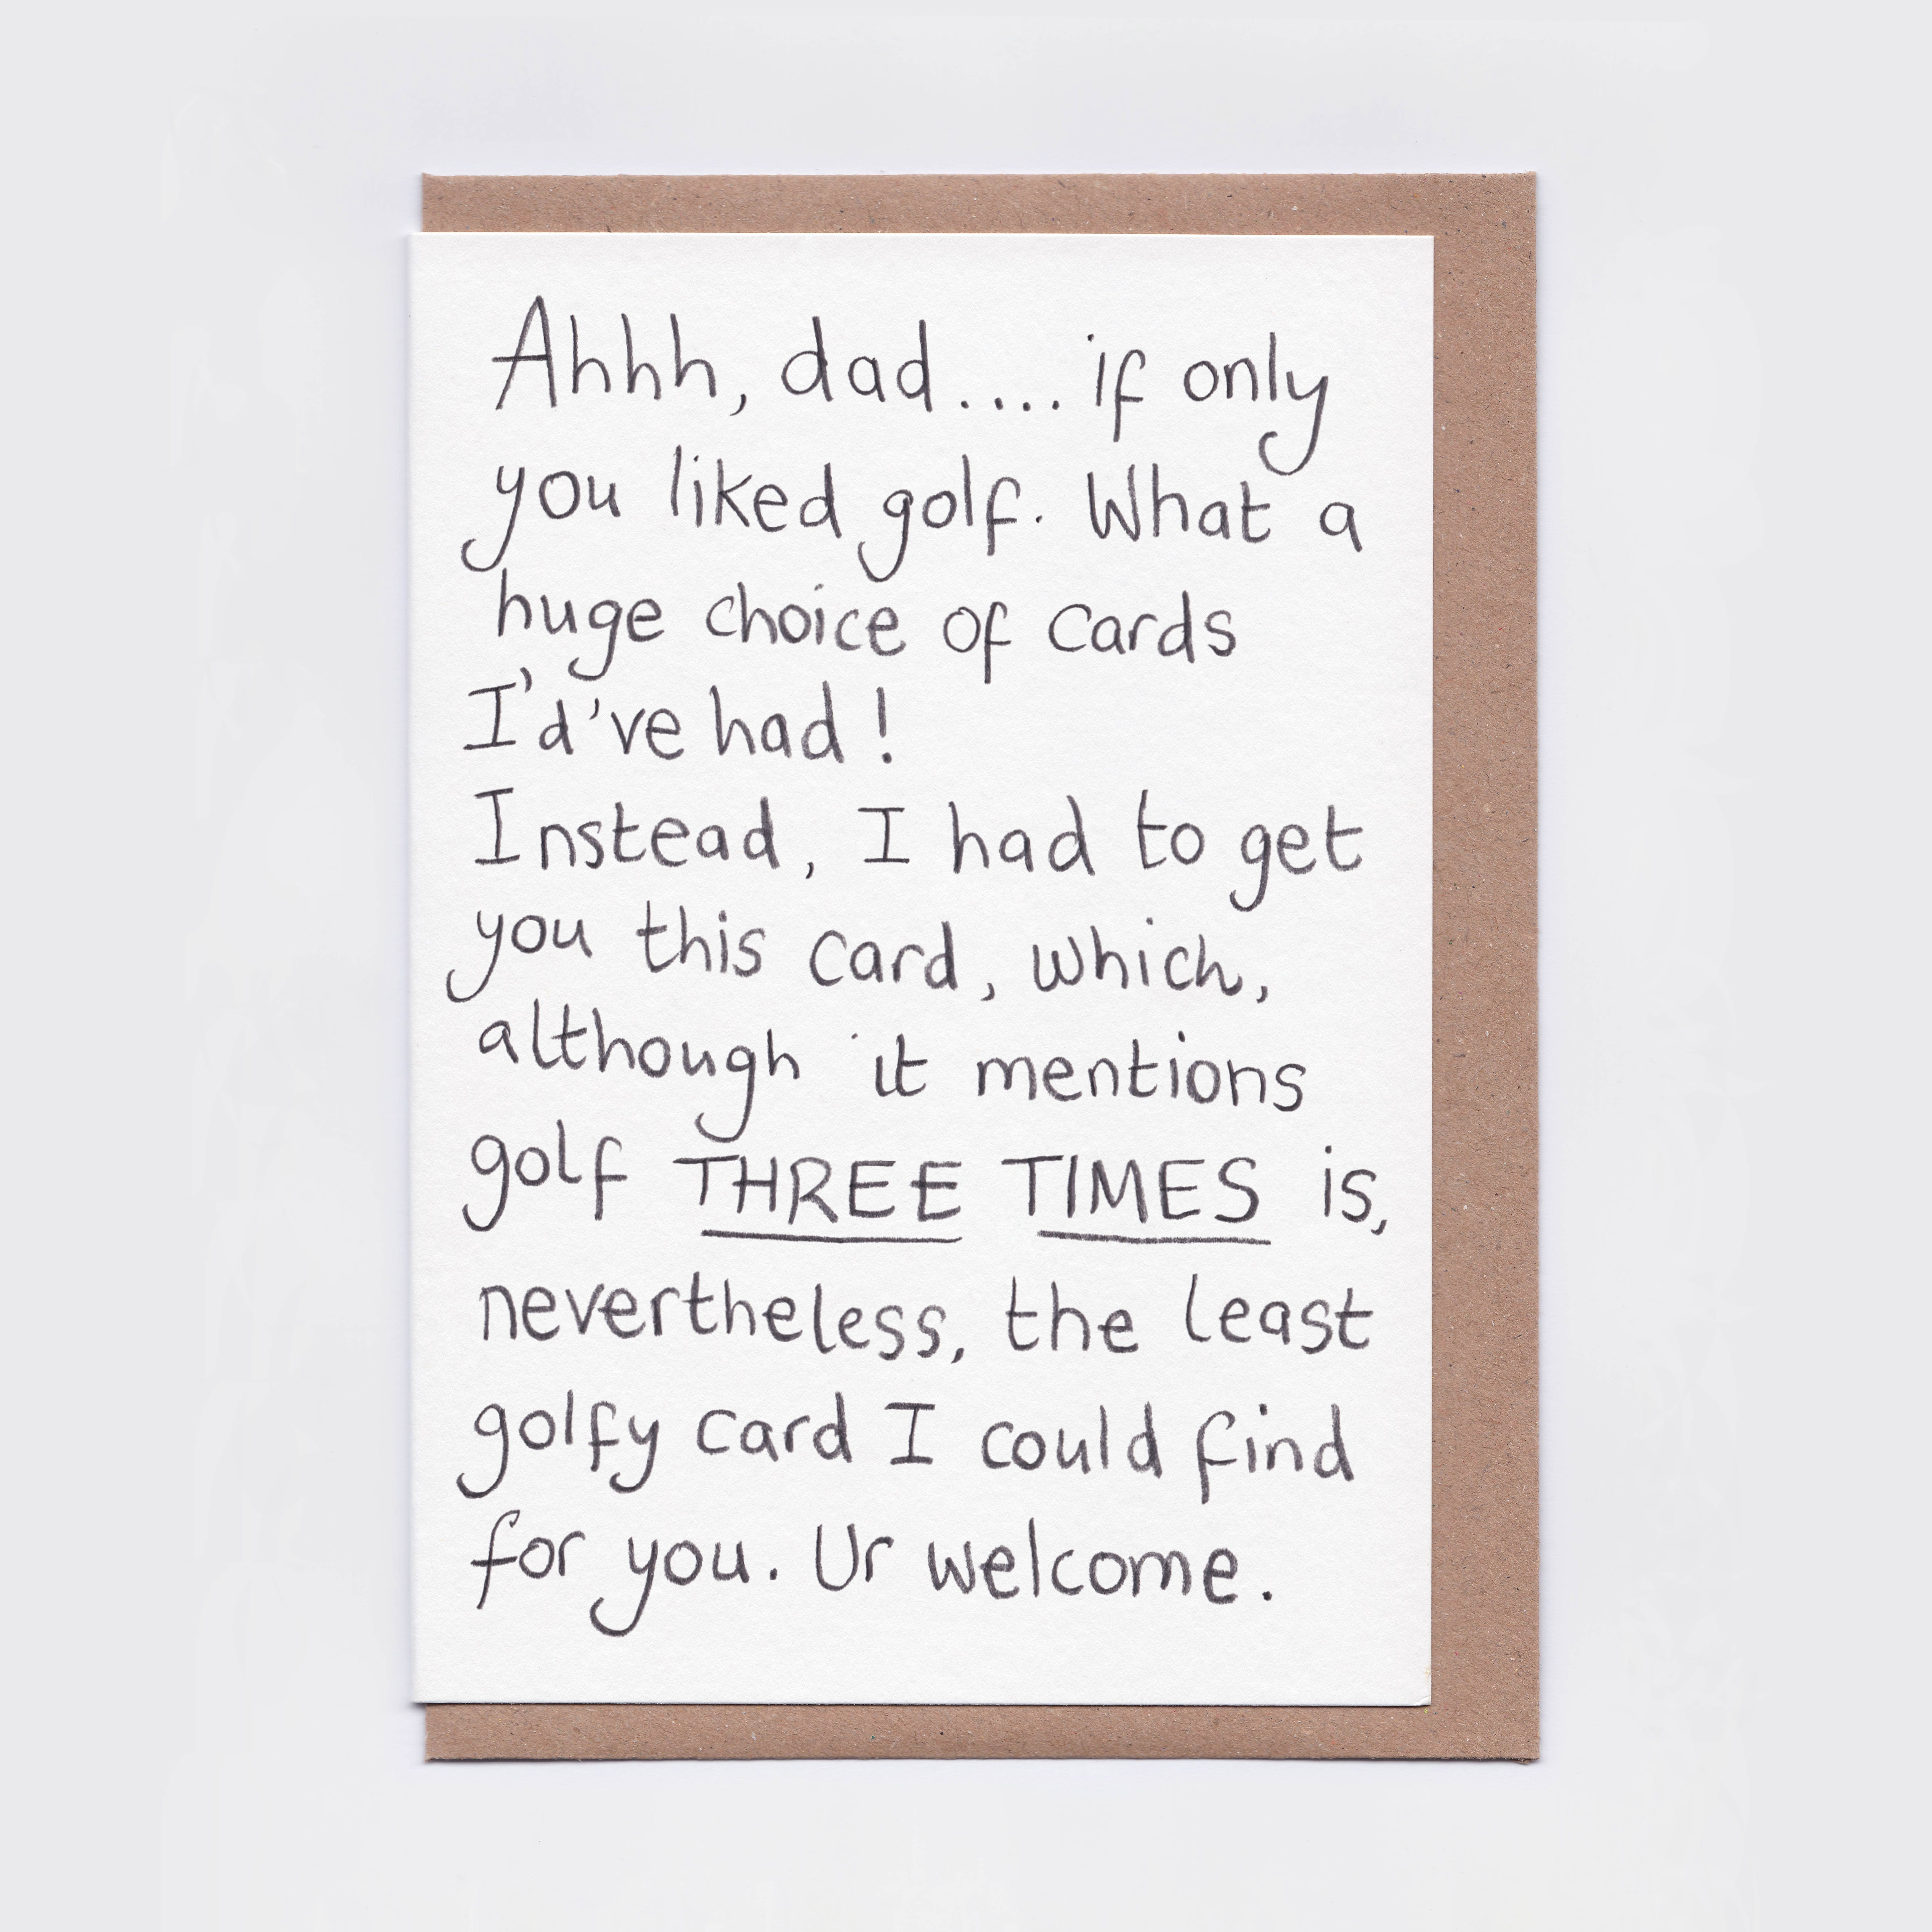 Ahhh, dad.... if only
you liked golf. What a
huge choice of cards
I'd've had!
Instead, I had to get
you this card, which,
although it mentions
golf THREE TIMES is,
nevertheless, the least
golfy card I could find
for you. Ur welcome.